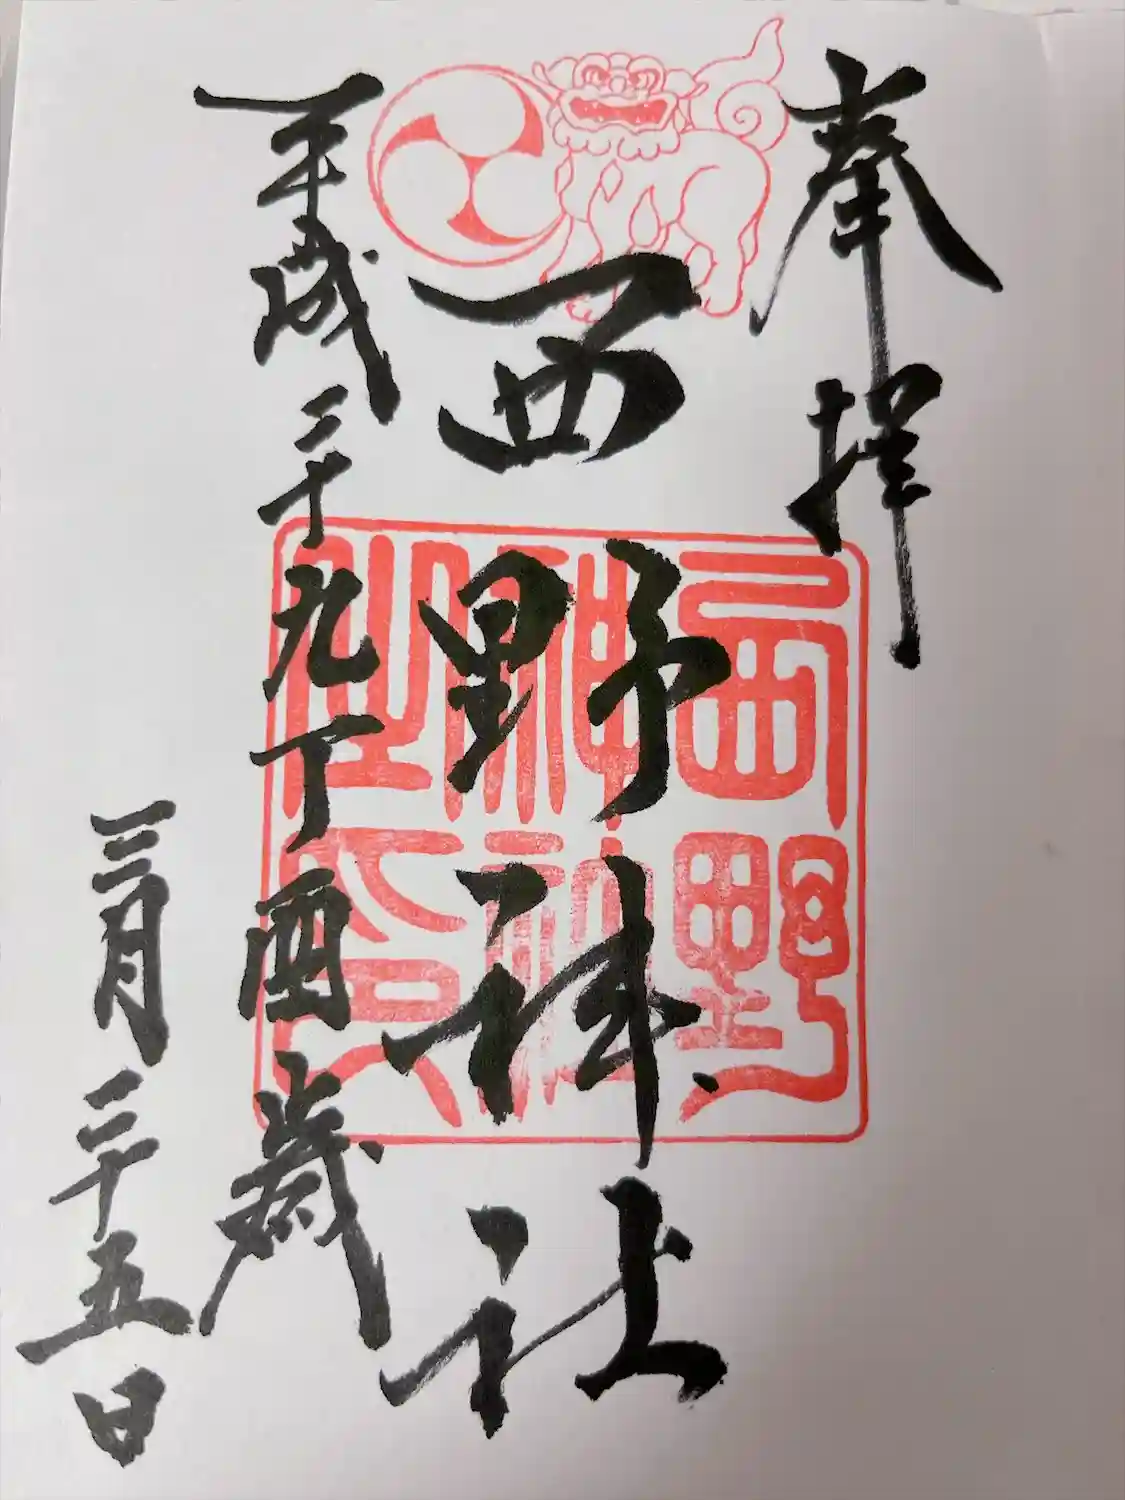 奉拝
西野神社
西野神社之印
平成二十九丁酉歳
三月二十五日